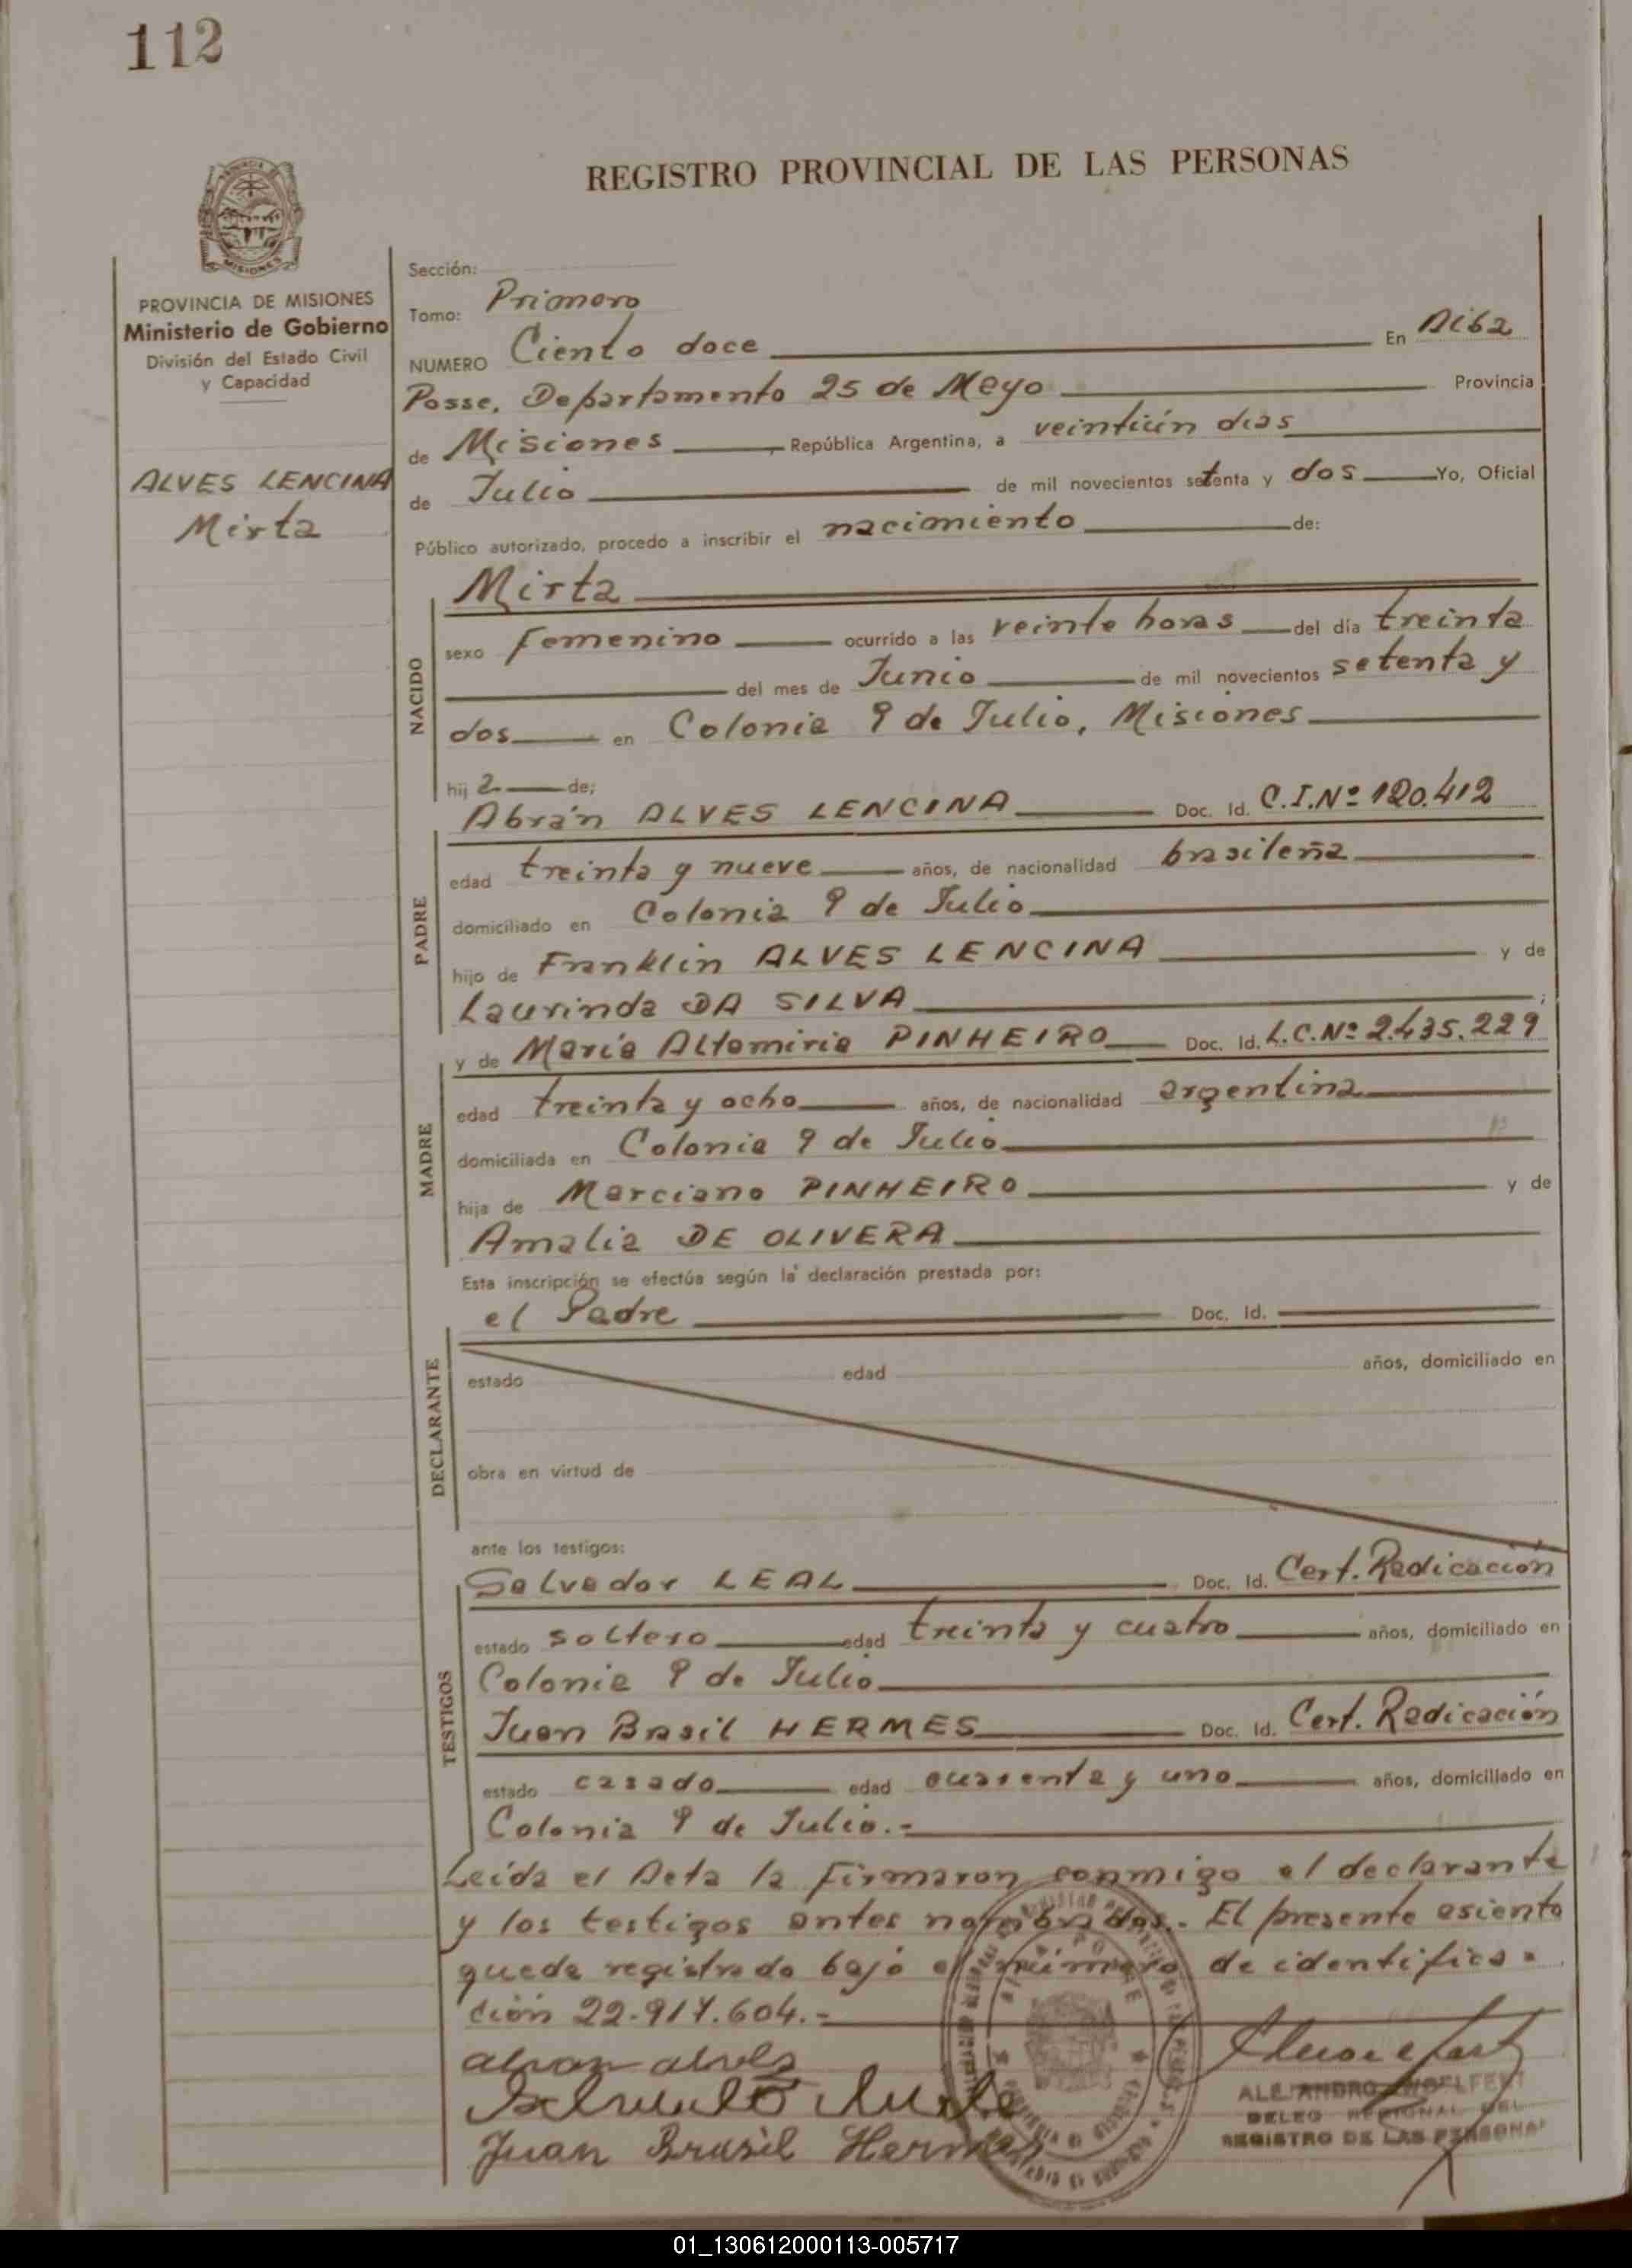 112
REGISTRO PROVINCIAL DE LAS PERSONAS
MISIONES
PROVINCIA DE MISIONES
Ministerio de Gobierno
División del Estado Civil
y Capacidad
ALVES LENCINA
Mirta
Sección:
Tomo: Primero
NUMERO Ciento doce En Alba
Posse, Departamento 25 de Mayo Provincia
de Misiones República Argentina, a veintiún dias
de Julio de mil novecientos setenta y dos Yo, Oficial
Público autorizado, procedo a inscribir el nacimiento de:
NACIDO
Mirta
sexo femenino ocurrido a las veinte horas del día treinta
del mes de Junio de mil novecientos setenta y
dos en Colonia 9 de Julio, Misiones
hija de;
PADRE
Abrán ALVES LENCINA Doc. Id. C.I.Nº 120.412
edad treinta y nueve años, de nacionalidad brasileña
domiciliado en Colonia 9 de Julio
hijo de Franklin ALVES LENCINA y de
Laurinda DA SILVA ;
MADRE
y de María Altamiria PINHEIRO Doc. Id. L.C.Nº 2.435.229
edad treinta y ocho años, de nacionalidad argentina
domiciliada en Colonia 9 de Julio
hija de Marciano PINHEIRO y de
Amalia DE OLIVERA
Esta inscripción se efectúa según la declaración prestada por:
DECLARANTE
el Padre Doc. Id.
estado edad años, domiciliado en
obra en virtud de
ante los testigos:
TESTIGOS
Salvador LEAL Doc. Id. Cert. Radicación
estado soltero edad treinta y cuatro años, domiciliado en
Colonia 9 de Julio
Juan Brasil HERMES Doc. Id. Cert. Radicación
estado casado edad cuarenta y uno años, domiciliado en
Colonia 9 de Julio.-
Leída el Acta la firmaron conmigo el declarante
y los testigos antes nombrados.- El presente asiento
queda registrado bajo el número de identifica-
ción 22.917.604.-
Juan Brasil Hermes
ALEJANDRO
DELEG REGIONAL DEL
REGISTRO DE LAS PERSONAS
01_130612000113-005717